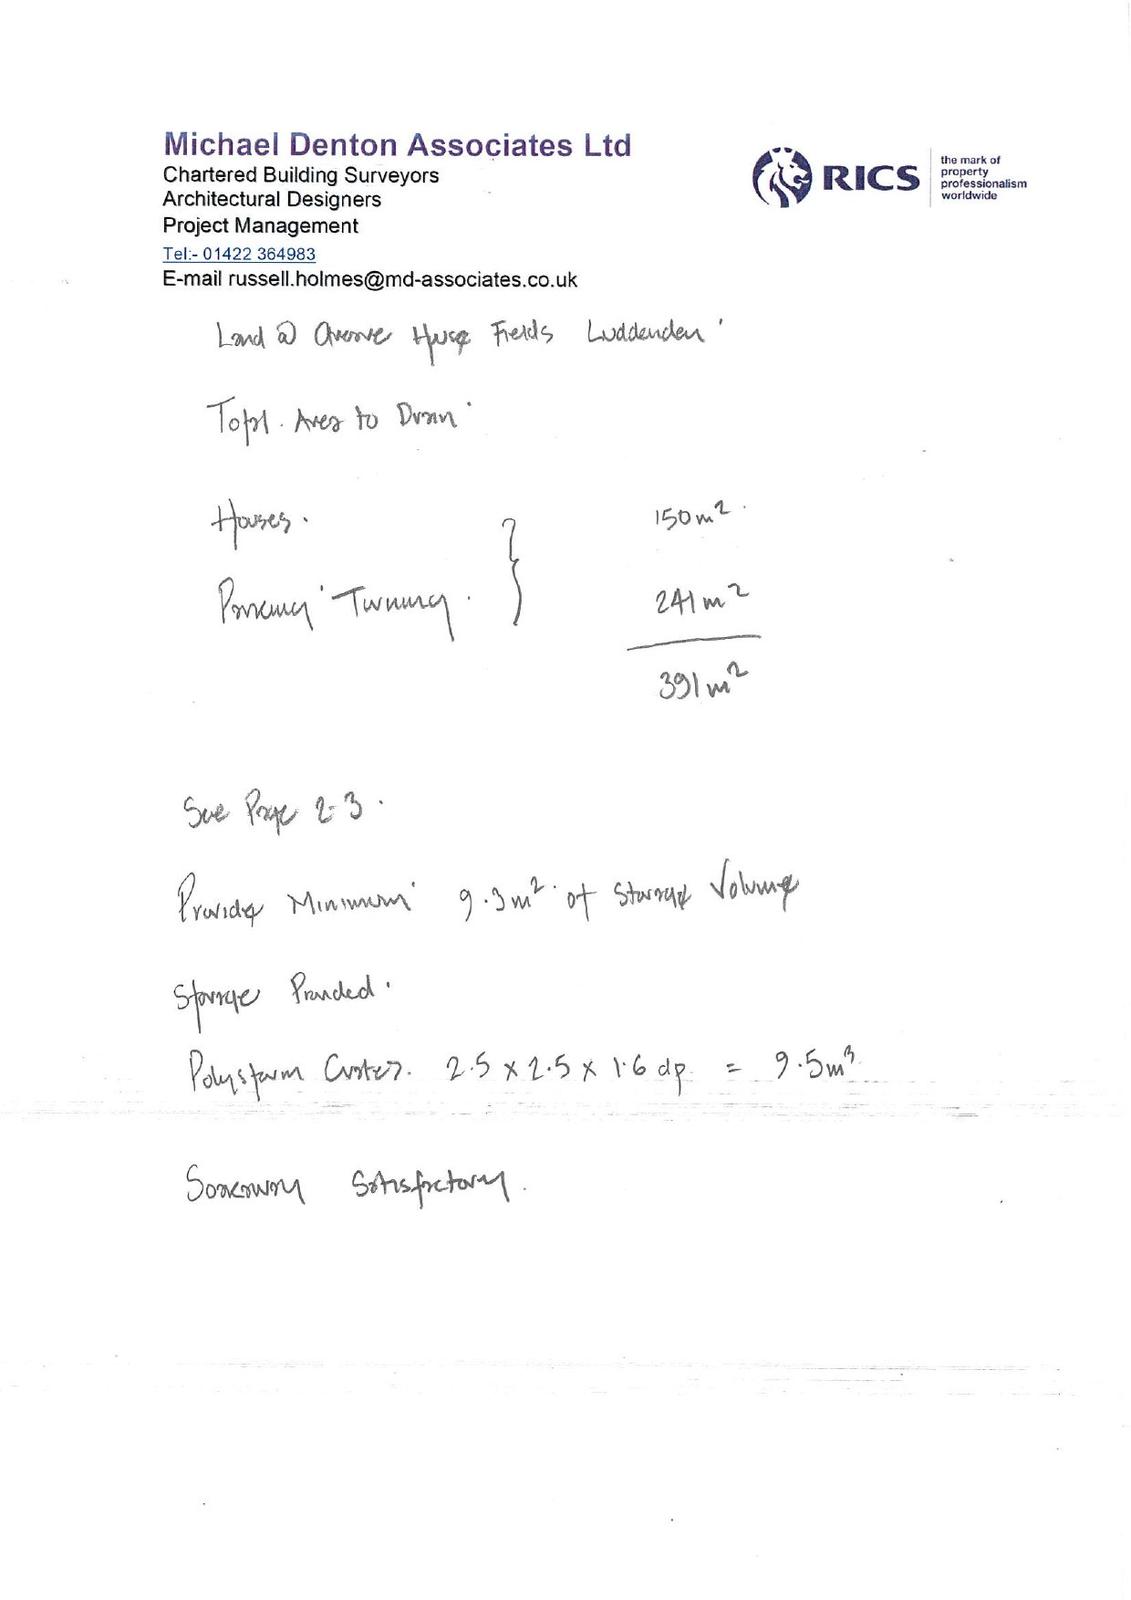 Michael Denton Associates Ltd
Chartered Building Surveyors
Architectural Designers
Project Management
Tel:- 01422 364983
E-mail russell.holmes@md-associates.co.uk
RICS
the mark of
property
professionalism
worldwide
Land @ House Fields Luddenden
Total Area to Drain
Houses. 150m²
Parking Turning. 241m²
391m²
See Page 2-3.
Provide Minimum 9.3m² of Storage Volume
Storage Provided.
Polystorm Crates. 2.5 x 2.5 x 1.6 dp = 9.5m³
Soakaway Satisfactory.